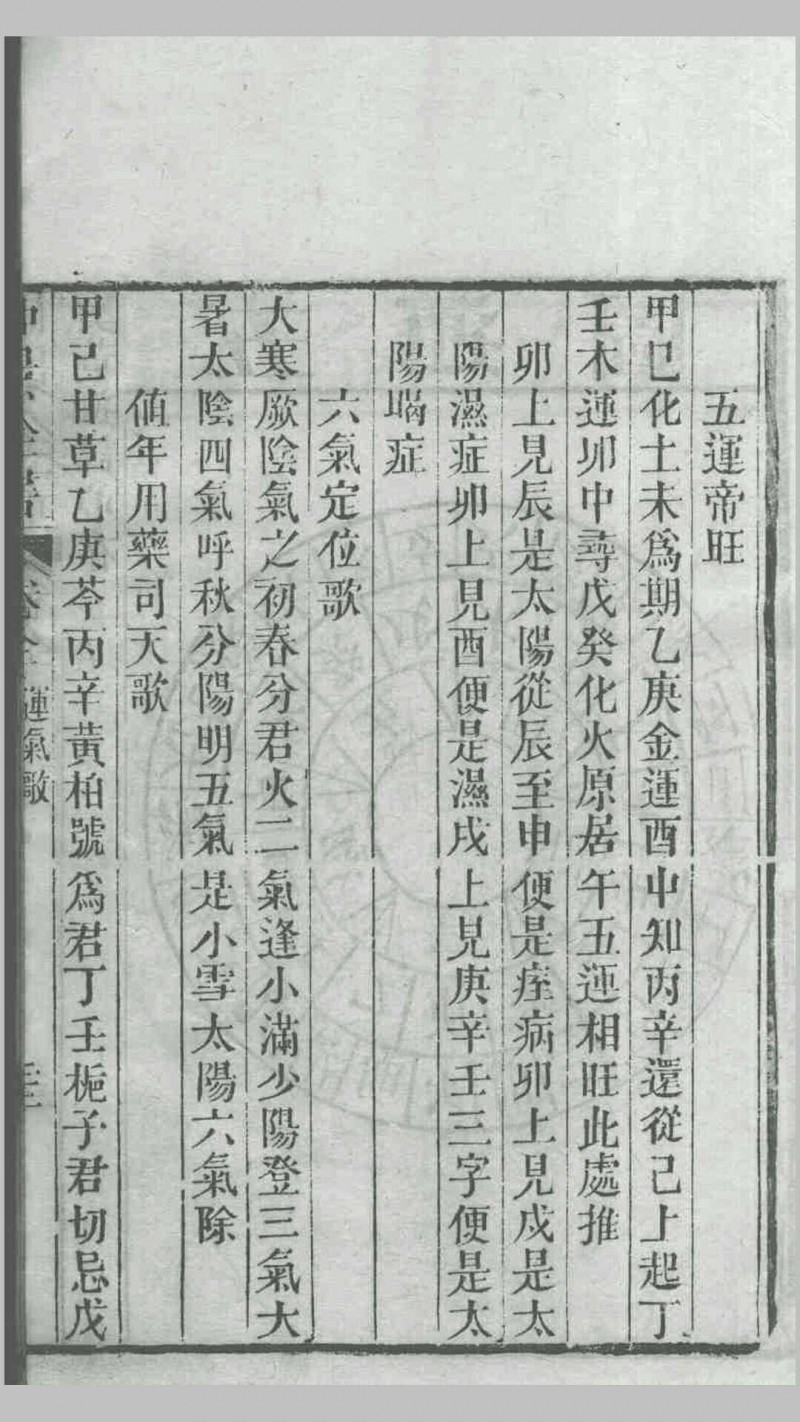 五運帝旺
甲巳化土未爲期乙庚金運酉中知丙辛還從己上起丁
壬木運卯中尋戊癸化火原居午五運相旺此處推
卯上見辰是太陽從辰至申便是痓病卯上見戍是太
陽濕症卯上見酉便是濕戍上見庚辛壬三字便是太
陽暍症
六氣定位歌
大寒厥陰氣之初春分君火二氣逢小滿少陽登三氣大
暑太陰四氣呼秋分陽明五氣是小雪太陽六氣除
値年用藥司天歌
甲己甘草乙庚芩丙辛黃柏號爲君丁壬梔子君切忌戊
運氣歌